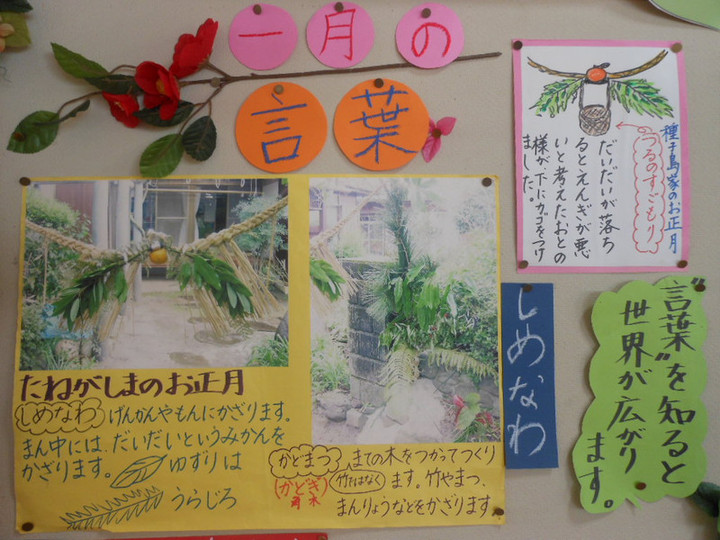 一月の
言葉
種子島家のお正月
つるのすごもり
だいだいが落ち
るとえんぎが悪
いと考えたおとの
様が下にカゴをつけ
ました。
たねがしまのお正月
しめなわ げんかんやもんにかざります。
まん中には、だいだいというみかんを
かざります。
ゆずりは
うらじろ
かどまつ
(かどぎ)
角木
まての木をつかってつくり
竹だけではなく
ます。竹やまつ、
まんりょうなどをかざります。
しめなわ
"言葉"を知ると
世界が広がり
ます。